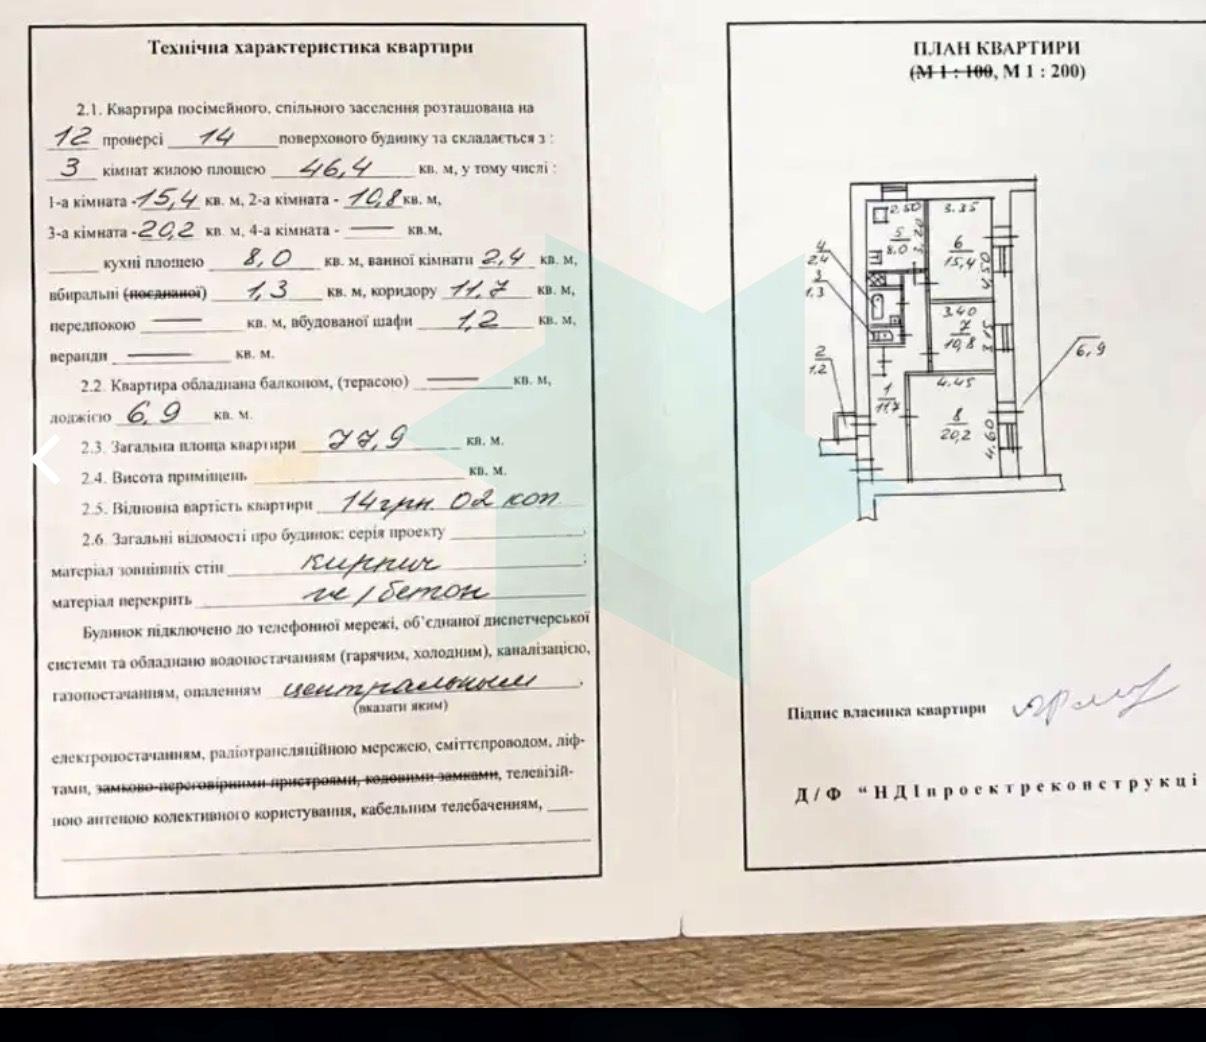 Технічна характеристика квартири
2.1. Квартира посімейного, спільного заселення розташована на
12 поверсі 14 поверхового будинку та складається з :
3 кімнат жилою площею 46,4 кв. м, у тому числі :
1-а кімната - 15,4 кв. м, 2-а кімната - 10,8 кв. м,
3-а кімната - 20,2 кв. м, 4-а кімната - — кв.м,
кухні площею 8,0 кв. м, ванної кімнати 2,4 кв. м,
вбиральні (поєднаної) 1,3 кв. м, коридору 11,7 кв. м,
передпокою — кв. м, вбудованої шафи 1,2 кв. м,
веранди — кв. м.
2.2. Квартира обладнана балконом, (терасою) — кв. м,
лоджією 6,9 кв. м.
2.3. Загальна площа квартири 77,9 кв. м.
2.4. Висота приміщень кв. м.
2.5. Відновна вартість квартири 14 грн. 02 коп
2.6. Загальні відомості про будинок: серія проекту
матеріал зовнішніх стін кирпич ;
матеріал перекрить ж/бетон
Будинок підключено до телефонної мережі, об'єднаної диспетчерської
системи та обладнано водопостачанням (гарячим, холодним), каналізацією,
газопостачанням, опаленням центральным ,
(вказати яким)
електропостачанням, радіотрансляційною мережею, сміттєпроводом, ліф-
тами, замково-переговірними пристроями, кодовими замками, телевізій-
ною антеною колективного користування, кабельним телебаченням,
ПЛАН КВАРТИРИ
(М 1 : 100, М 1 : 200)
2.50 3.35
5 8.0 3.20
6 15,4 4.50
4 2.4
3 1.3
3.40
7 10,8 3.13
6,9
2 1.2
4.45
1 11.7
8 20,2 4.60
Підпис власника квартири
Д/Ф “НДІпроектреконструкці